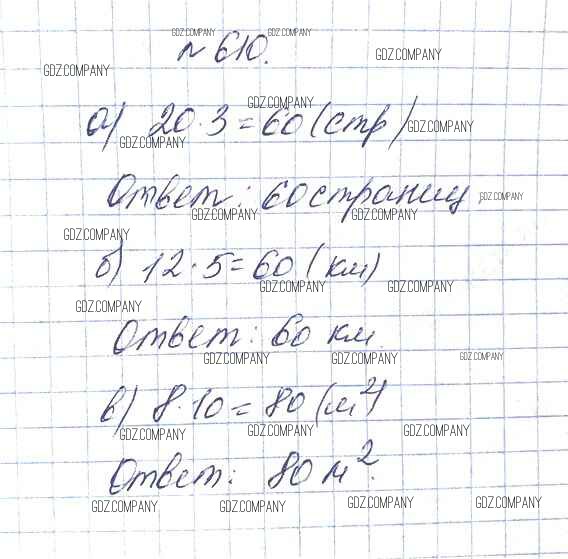 GDZ.COMPANY GDZ.COMPANY
№ 610.
GDZ.COMPANY GDZ.COMPANY
GDZ.COMPANY
а) 20·3=60 (стр) GDZ.COMPANY
GDZ.COMPANY
Ответ: 60 страниц. GDZ.COMPANY
GDZ.COMPANY GDZ.COMPANY
GDZ.COMPANY
б) 12·5=60 (км)
GDZ.COMPANY GDZ.COMPANY
GDZ.COMPANY
Ответ: 60 км.
GDZ.COMPANY GDZ.COMPANY GDZ.COMPANY
в) 8·10=80 (м²)
GDZ.COMPANY GDZ.COMPANY GDZ.COMPANY
Ответ: 80 м².
GDZ.COMPANY GDZ.COMPANY GDZ.COMPANY GDZ.COMPANY